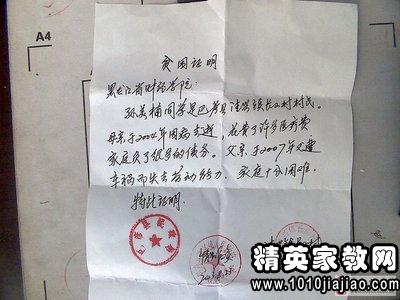 A4
贫困证明
黑龙江省财经学院:
孙美楠同学是巴彦县洼兴镇长义村村民。
母亲于2004年因病去逝,花费了许多医疗费
家庭负了很多的债务。父亲于2007年又遭
车祸而失去劳动能力,家庭十分困难。
特此证明。
巴彦县民政局
精英家教网
http://www.1010jiajiao.com